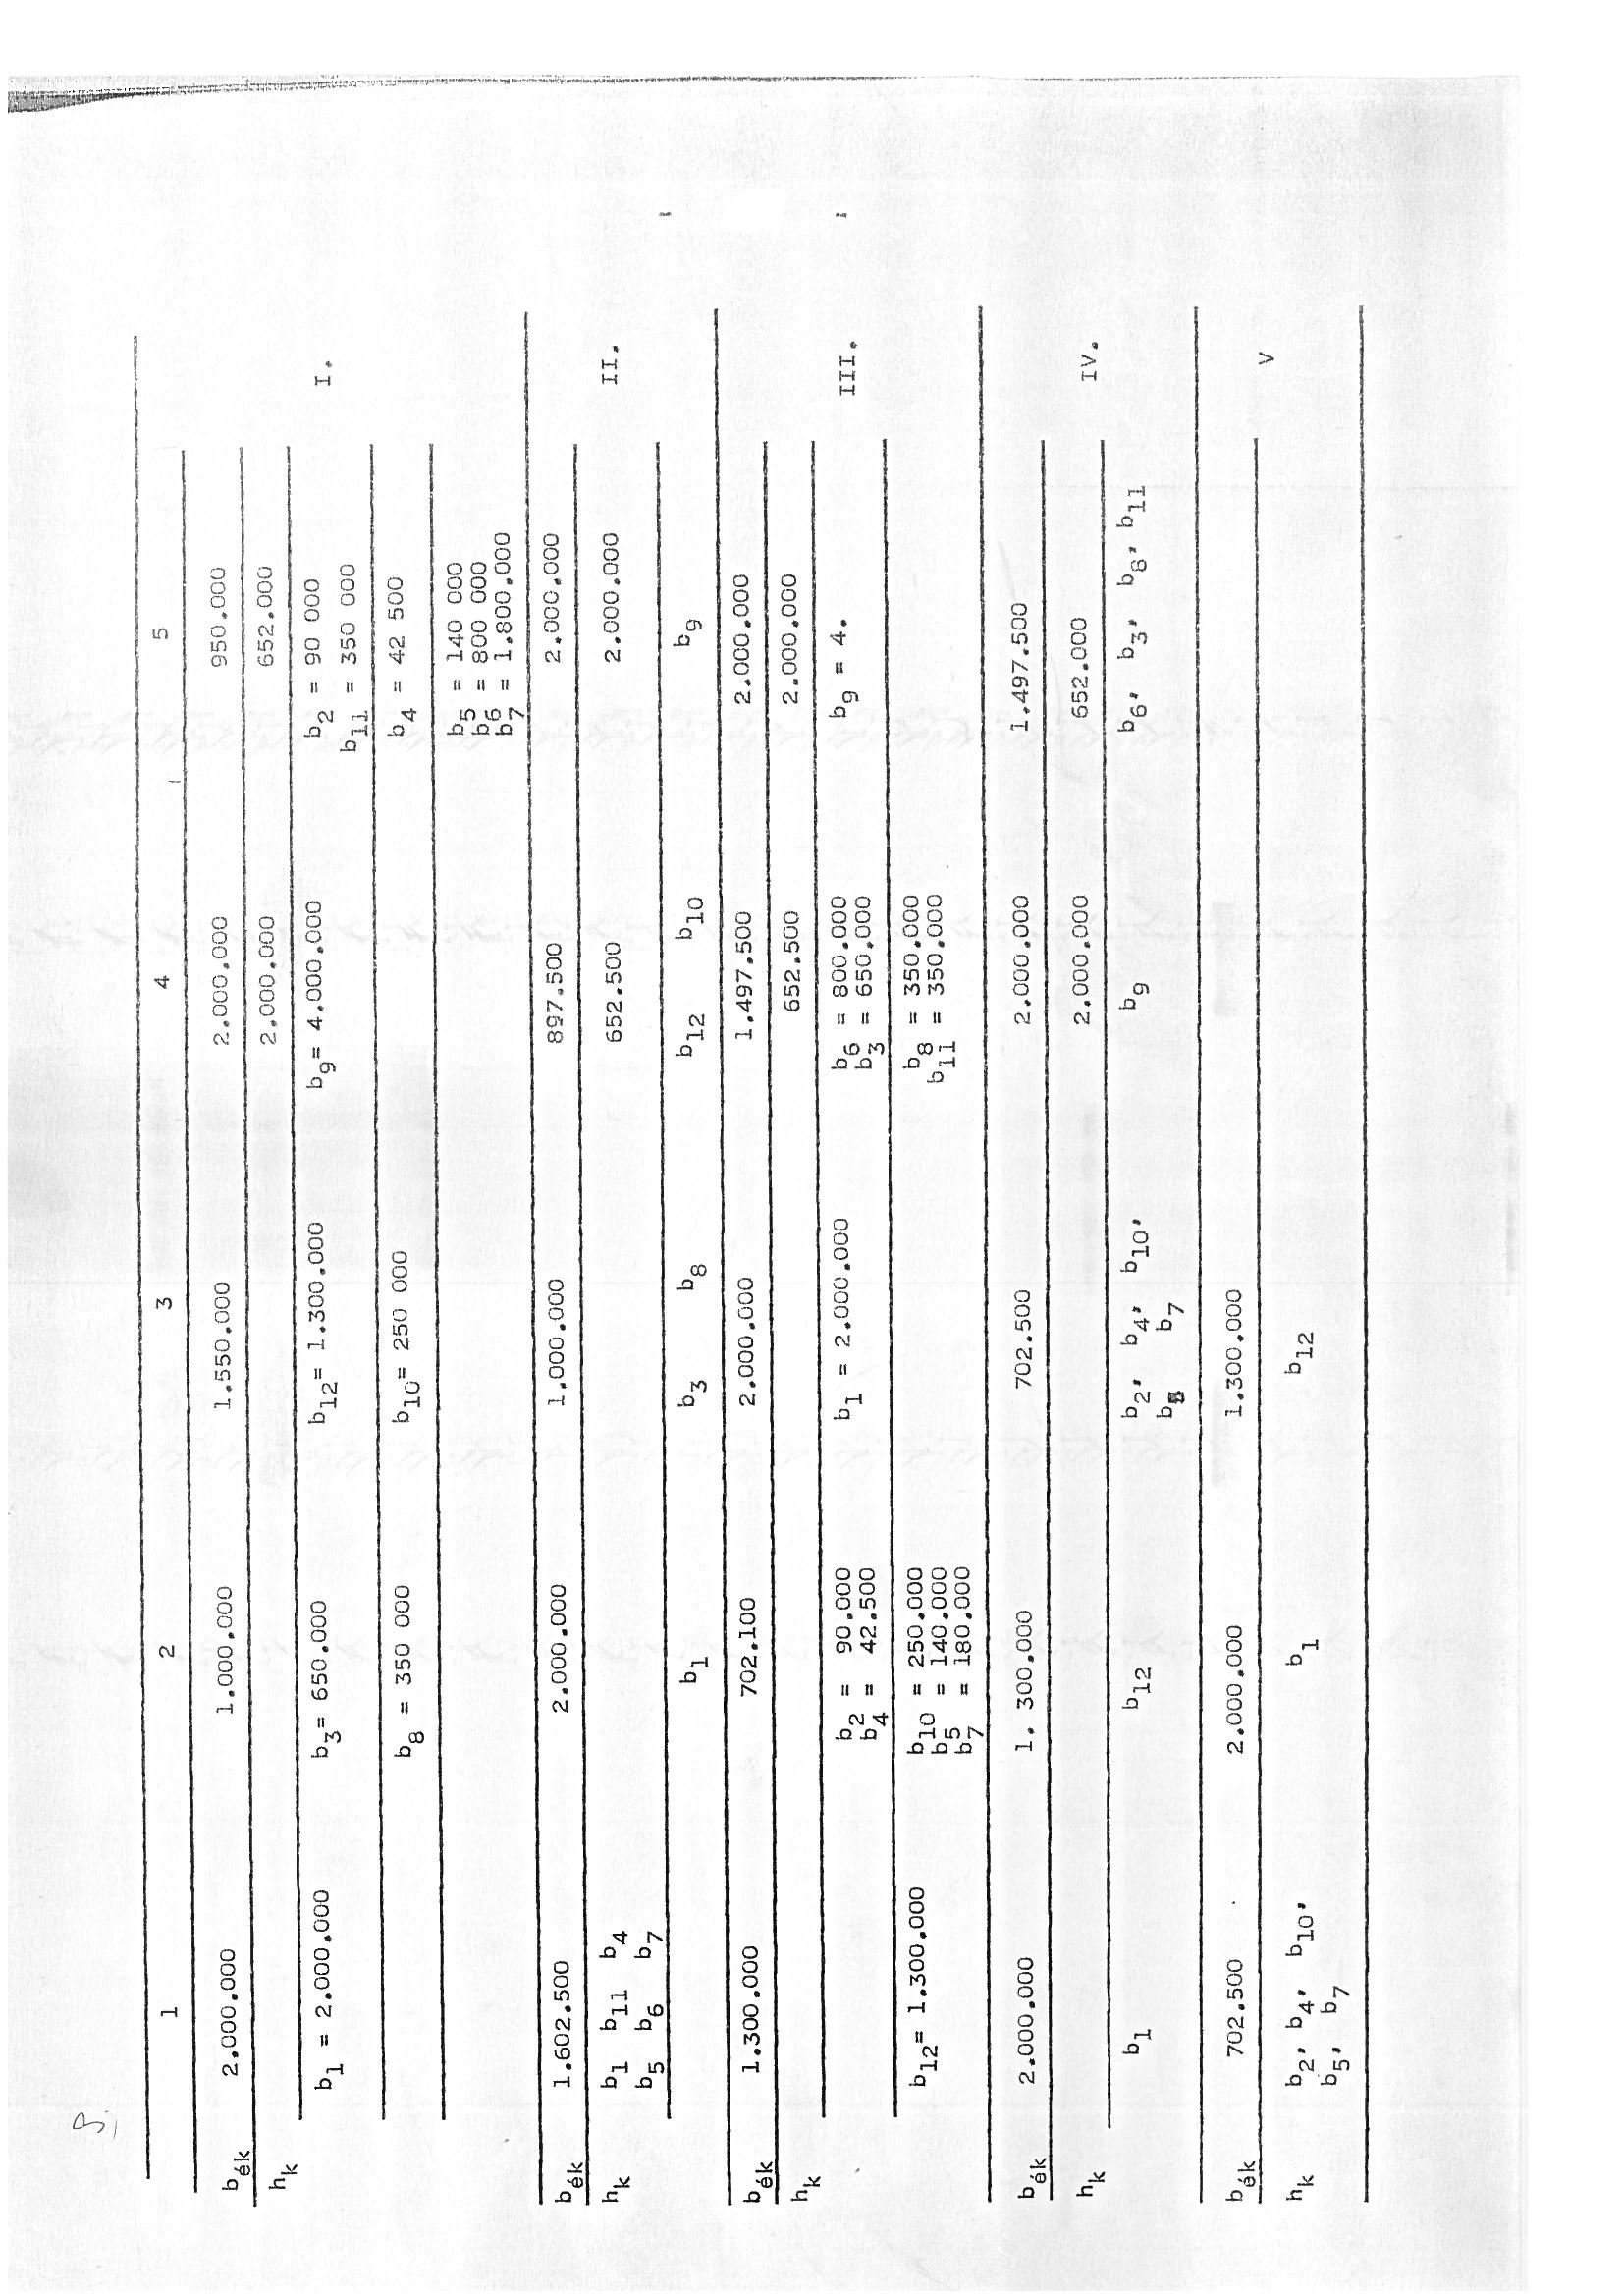 5.
1 2 3 4 5
b_ék 2.000.000 1.000.000 1.550.000 2.000.000 950.000
h_k 2.000.000 652.000
b_1 = 2.000.000 b_3 = 650.000 b_12 = 1.300.000 b_9 = 4.000.000 b_2 = 90 000 I.
b_11 = 350 000
b_8 = 350 000 b_10 = 250 000 b_4 = 42 500
b_5 = 140 000
b_6 = 800 000
b_7 = 1.800.000
b_ék 1.602.500 2.000.000 1.000.000 897.500 2.000.000
h_k b_1 b_11 b_4 652.500 2.000.000 II.
b_5 b_6 b_7
b_1 b_3 b_8 b_12 b_10 b_9
b_ék 1.300.000 702.100 2.000.000 1.497.500 2.000.000
h_k 652.500 2.000.000
b_2 = 90.000 b_1 = 2.000.000 b_6 = 800.000 b_9 = 4. III.
b_4 = 42.500 b_3 = 650.000
b_12 = 1.300.000 b_10 = 250.000 b_8 = 350.000
b_5 = 140.000 b_11 = 350.000
b_7 = 180.000
b_ék 2.000.000 1. 300.000 702.500 2.000.000 1.497.500
h_k 2.000.000 652.000 IV.
b_1 b_12 b_2, b_4, b_10, b_9 b_6, b_3, b_8, b_11
b_7
b_ék 702.500 2.000.000 1.300.000
V
h_k b_2, b_4, b_10, b_1 b_12
b_5, b_7